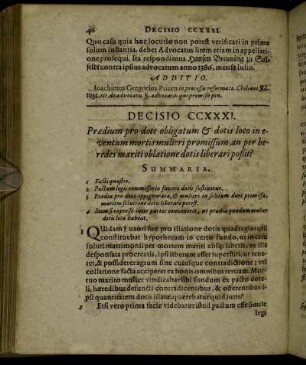 46 DECISIO CCXXXI.
Quo casu quia hæc locutio non potest verificari in prima
solum instantia, debet Advocatus litem etiam in appellati-
one prosequi. Ita respondimus
contra ipsius advocatum anno 1580. mense Iulio.
ADDITIO.
Ioachimus Gregorius in processu reformato.
DECISIO CCXXXI.
Prædium pro dote obligatum & dotis loco in e-
ventum mortis mulieri promissum, an per hæ-
redes mariti oblatione dotis liberari possit?
SUMMARIA.
1 Facti quæstio.
2 Pactum legis commissoriæ favore dotis sustinetur.
3 Prædio pro dote oppignorato, & mulieri in solutum dari promisso,
maritus solutione dotis liberare potest.
4 Secus si expresse inter partes conventum, ut prædia quædam mulier
dotis loco habeat.
1 Quidam uxori suæ pro illatione dotis quadringentorum
constituebat hypothecam in certo fundo, ea
soluti matrimonii per mortem mariti sine liberis, ex illa
desponsata procreatis, ipsi liberum esset superstiti, ut tene-
ret, & possideret agrum sine cujusque contradictione; vel
collatione facta acciperet ex bonis omnibus tertiam. Mor-
tuo marito mulier vindicabat sibi fundum ex pacto do-
tali, hæredibus defuncti contradicentibus, & offerentibus i-
psi quantitatem dotis illatæ; quærebatur quid juris?
2 Etsi vero prima facie videbatur istud pactum esse simile
legi